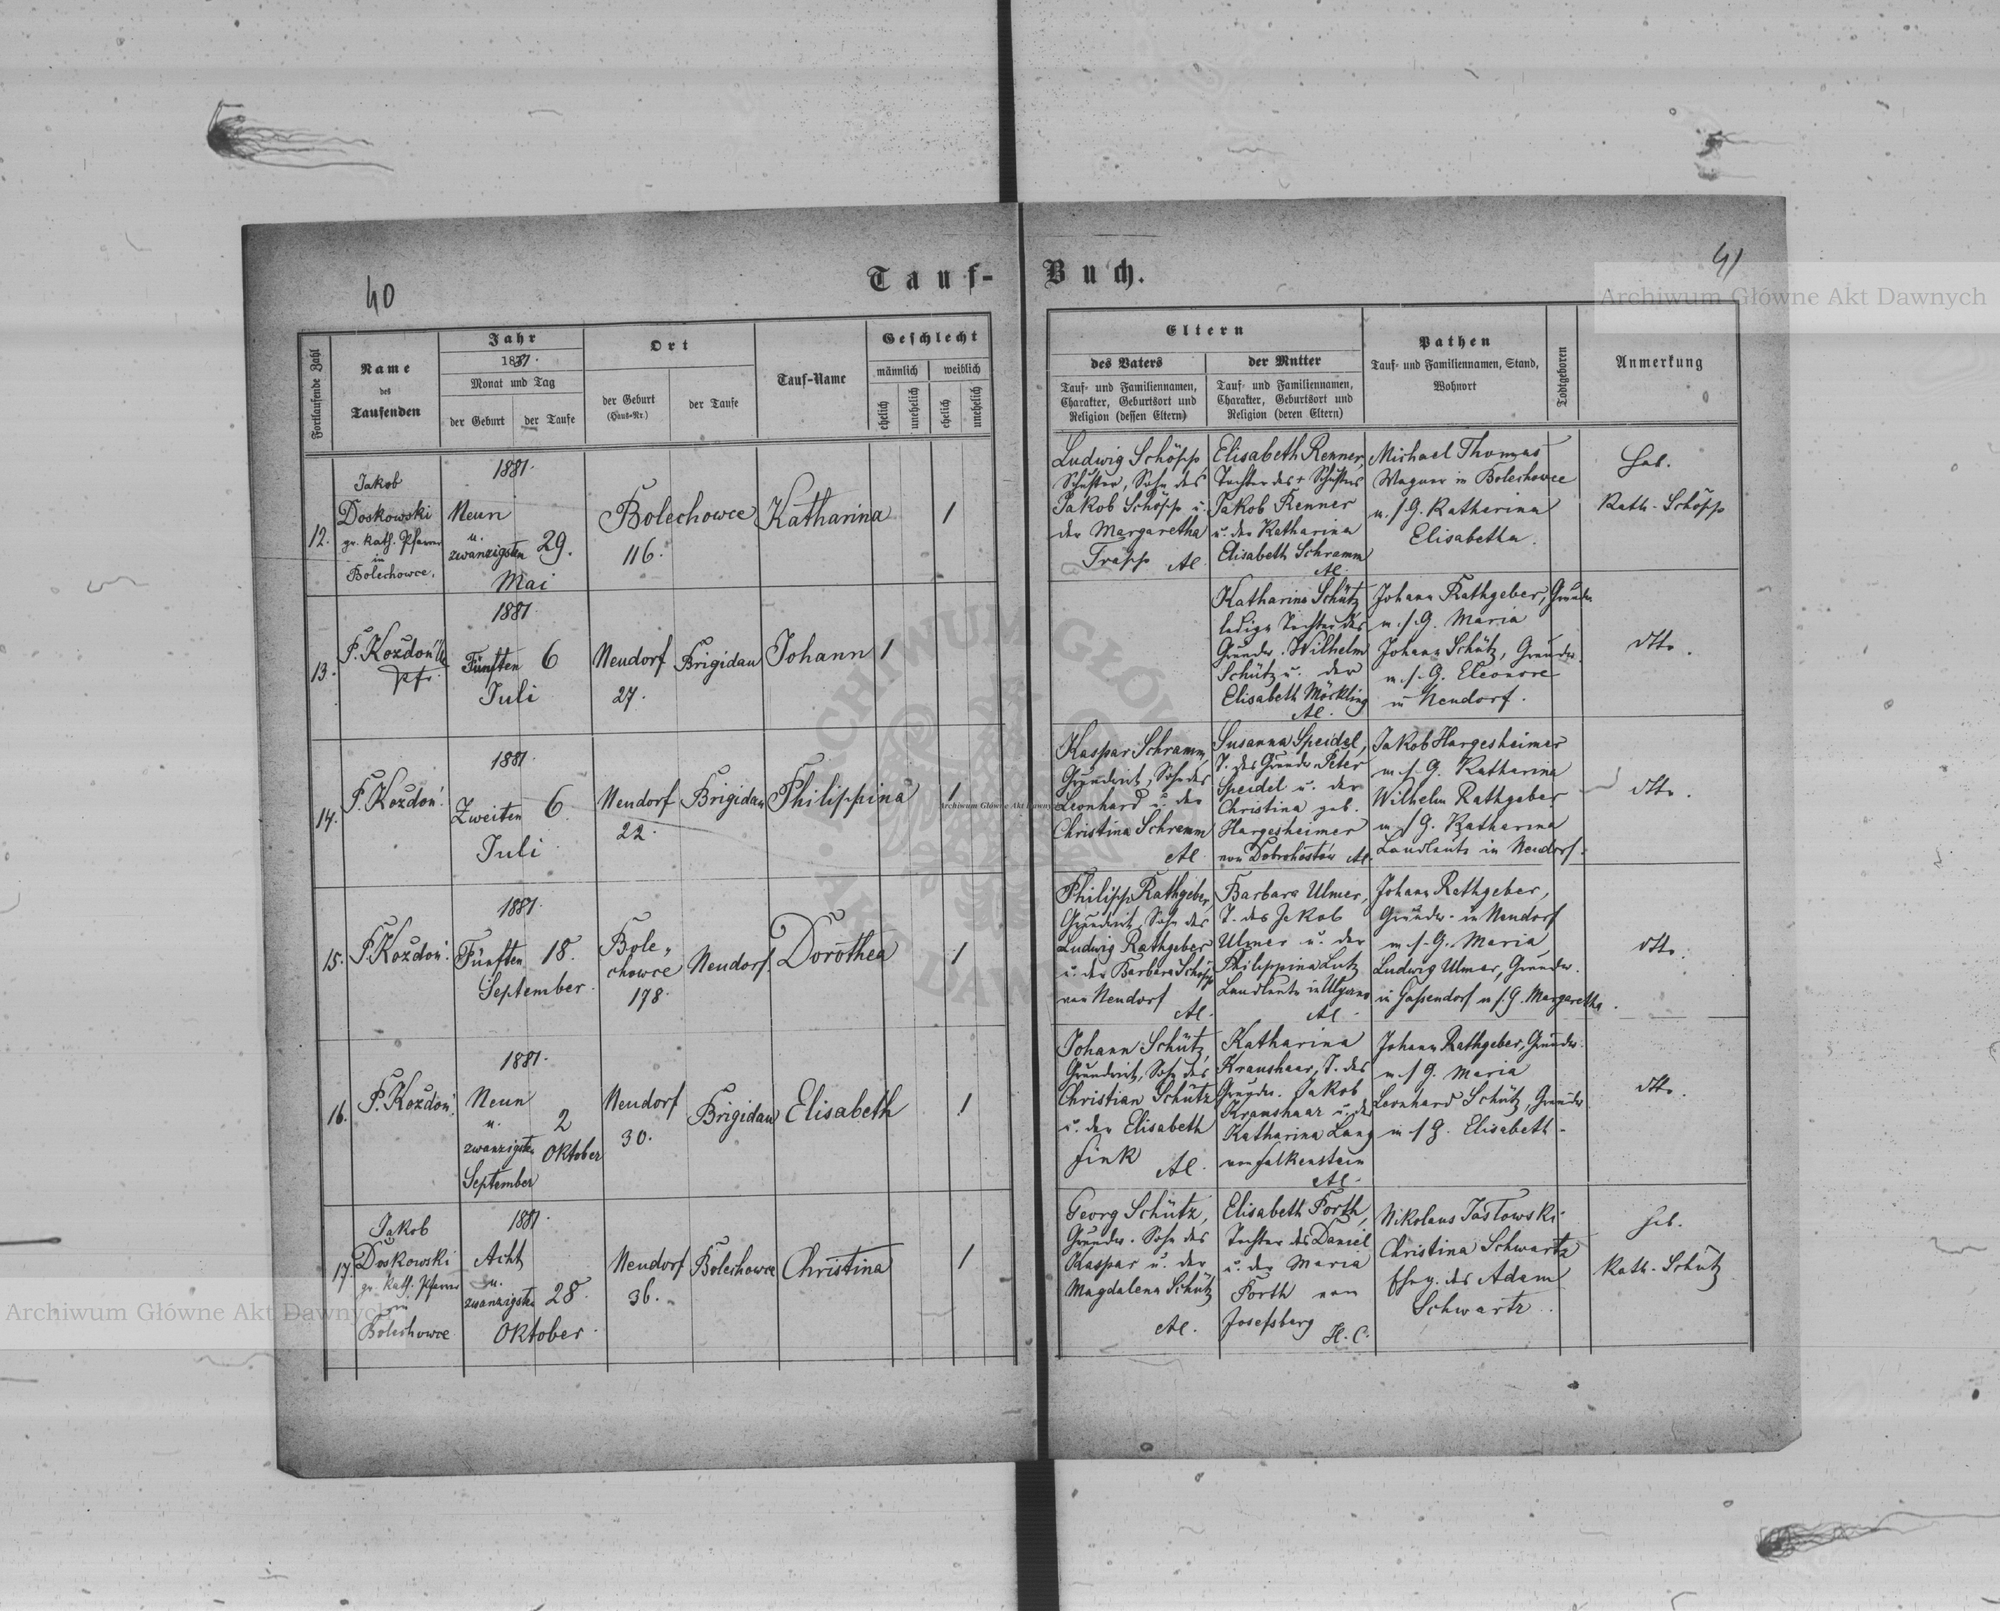 40
41
Tauf-
Buch.
Archiwum Główne Akt Dawnych
Fortlaufende Zahl
Name
des
Taufenden
Jahr
1881.
Monat und Tag
der Geburt
der Taufe
Ort
der Geburt
(Haus-Nr.)
der Taufe
Tauf-Name
Geschlecht
männlich
weiblich
ehelich
unehelich
ehelich
unehelich
Eltern
des Vaters
Tauf- und Familiennamen,
Charakter, Geburtsort und
Religion (dessen Eltern)
der Mutter
Tauf- und Familiennamen,
Charakter, Geburtsort und
Religion (deren Eltern)
Pathen
Tauf- und Familiennamen, Stand,
Wohnort
Todtgeboren
Anmerkung
12.
Jakob
Doskowski
gr. kath. Pfarrer
in
Bolechowce.
1881.
Neun
u.
zwanzigsten
29.
Mai
Bolechowce
116.
Katharina
1
Ludwig Schöpp,
Schuster, Sohn des
Jakob Schöpp u.
der Margaretha
Trapp AC
Elisabeth Renner,
Tochter des + Schusters
Jakob Renner
u. der Katharina
Elisabeth Schramm
AC.
Michael Thomas
Wagner in Bolechowce
u. s. G. Katharina
Elisabetha.
Heb.
Kath. Schöpp
13.
P. Kozdoń
Pfr.
1881.
Fünften
6
Juli
Neudorf
27.
Brigidau
Johann
1
Katharina Schütz
ledige Tochter des
Grundw. Wilhelm
Schütz u. der
Elisabeth Mörkling
AC.
Johann Rathgeber, Grundw.
u. s. G. Maria
Johann Schütz, Grundw.
u. s. G. Eleonore
in Neudorf.
dtto.
14.
P. Kozdoń.
1881.
Zweiten
6.
Juli
Neudorf
22.
Brigidau
Philippina
1
Kaspar Schramm,
Grundwirt, Sohn des
Leonhard u. der
Christina Schramm
AC.
Susanna Speidel,
T. des Grundw. Peter
Speidel u. der
Christina geb.
Hargesheimer
von Dobrohostów AC.
Jakob Hargesheimer
u. s. G. Katharina
Wilhelm Rathgeber
u. s. G. Katharina
Landleute in Neudorf.
dtto.
15.
P. Kozdoń.
1881.
Fünften
18.
September.
Bole-
chowce
178.
Neudorf
Dorothea
1
Philipp Rathgeber,
Grundwirt, Sohn des
Ludwig Rathgeber
u. der Barbara Schöpp
von Neudorf
AC.
Barbara Ulmer,
T. des Jakob
Ulmer u. der
Philippina Lutz
Landleute in Ugarsb.
AC.
Johann Rathgeber,
Grundw. in Neudorf
u. s. G. Maria
Ludwig Ulmer, Grundw.
in Gassendorf u. s. G. Margaretha.
dtto.
16.
P. Kozdoń.
1881.
Neun
u.
zwanzigsten
September
2
Oktober
Neudorf
30.
Brigidau
Elisabeth
1
Johann Schütz,
Grundwirt, Sohn des
Christian Schütz
u. der Elisabeth
Fink AC.
Katharina
Kraushaar, T. des
Grundw. Jakob
Kraushaar u. der
Katharina Lang
von Falkenstein
AC.
Johann Rathgeber, Grundw.
u. s. G. Maria
Leonhard Schütz, Grundw.
u. s. G. Elisabeth.
dtto.
17.
Jakob
Doskowski
gr. kath. Pfarrer
in
Bolechowce
1881.
Acht
u.
zwanzigsten
28.
Oktober.
Neudorf
36.
Bolechowce
Christina
1
Georg Schütz,
Grundw. Sohn des
Kaspar u. der
Magdalena Schütz
AC.
Elisabeth Forth,
Tochter des Daniel
u. der Maria
Forth von
Josefsberg
H. C.
Nikolaus Jastowski
Christina Schwartz
Eheg. des Adam
Schwartz.
Heb.
Kath. Schütz
Archiwum Główne Akt Dawnych
Archiwum Główne Akt Dawnych
ARCHIWUM GŁÓWNE AKT DAWNYCH